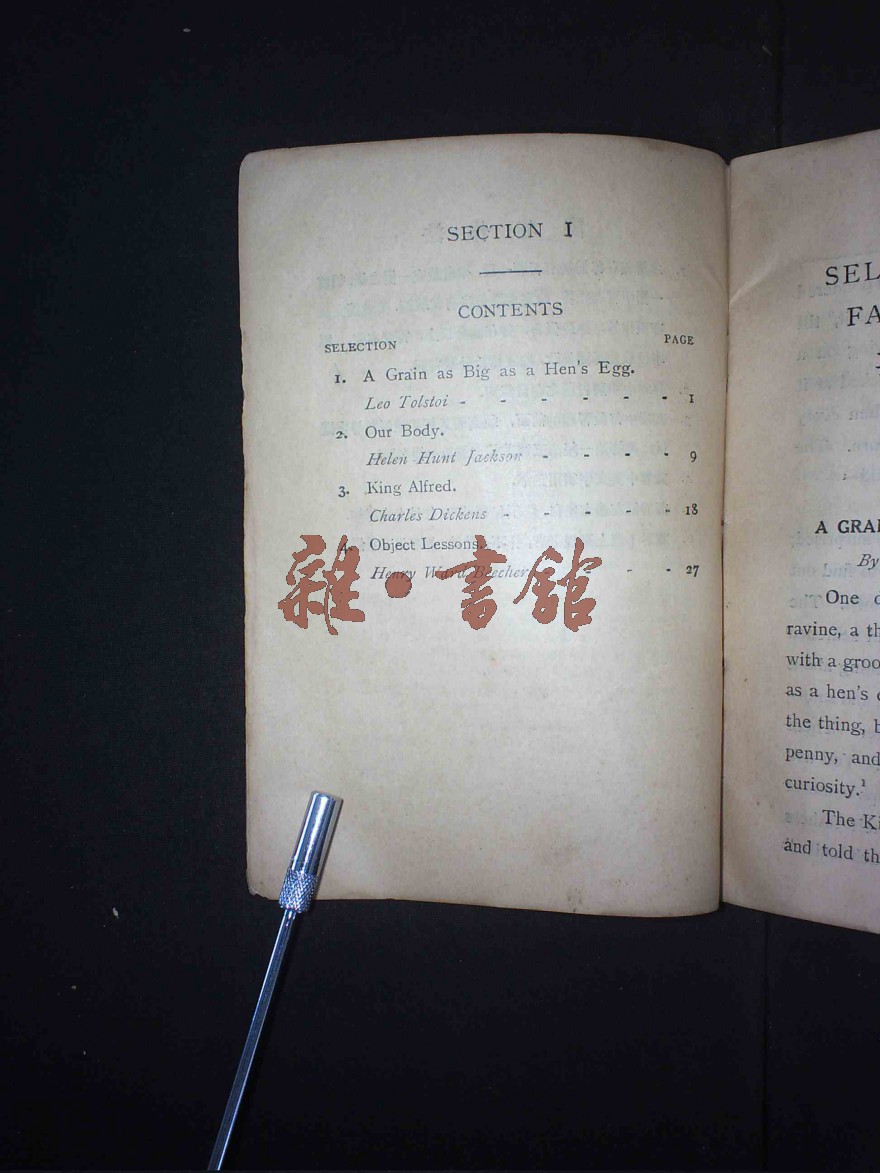 SECTION I
CONTENTS
SELECTION PAGE
1. A Grain as Big as a Hen's Egg.
Leo Tolstoi - - - - - - 1
2. Our Body.
Helen Hunt Jackson - - - - 9
3. King Alfred.
Charles Dickens - - - - - 18
4. Object Lessons.
Henry Ward Beecher - - - 27
雜·書館
SEL
FA
A GRAI
By
One
ravine, a th
with a groo
as a hen's
the thing, b
penny, and
curiosity.¹
The Ki
and told th